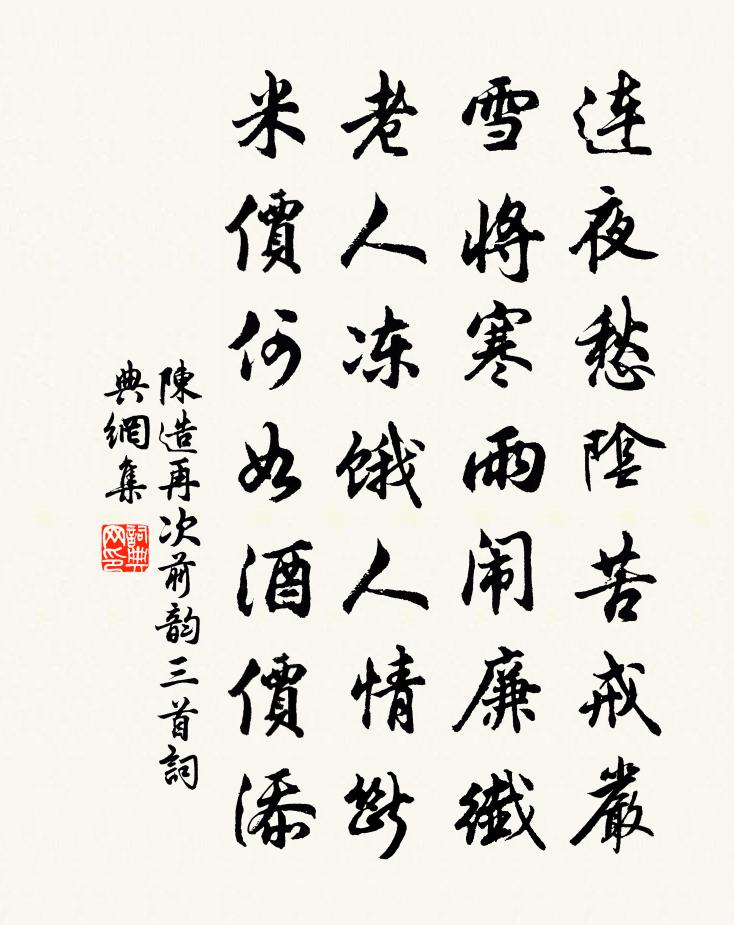 連夜愁陰苦戒嚴
雪將寒雨闹廉纖
老人冻餓人情斷
米價何如酒價添
陳造再次前韵三首詞
典網集
詞典网印